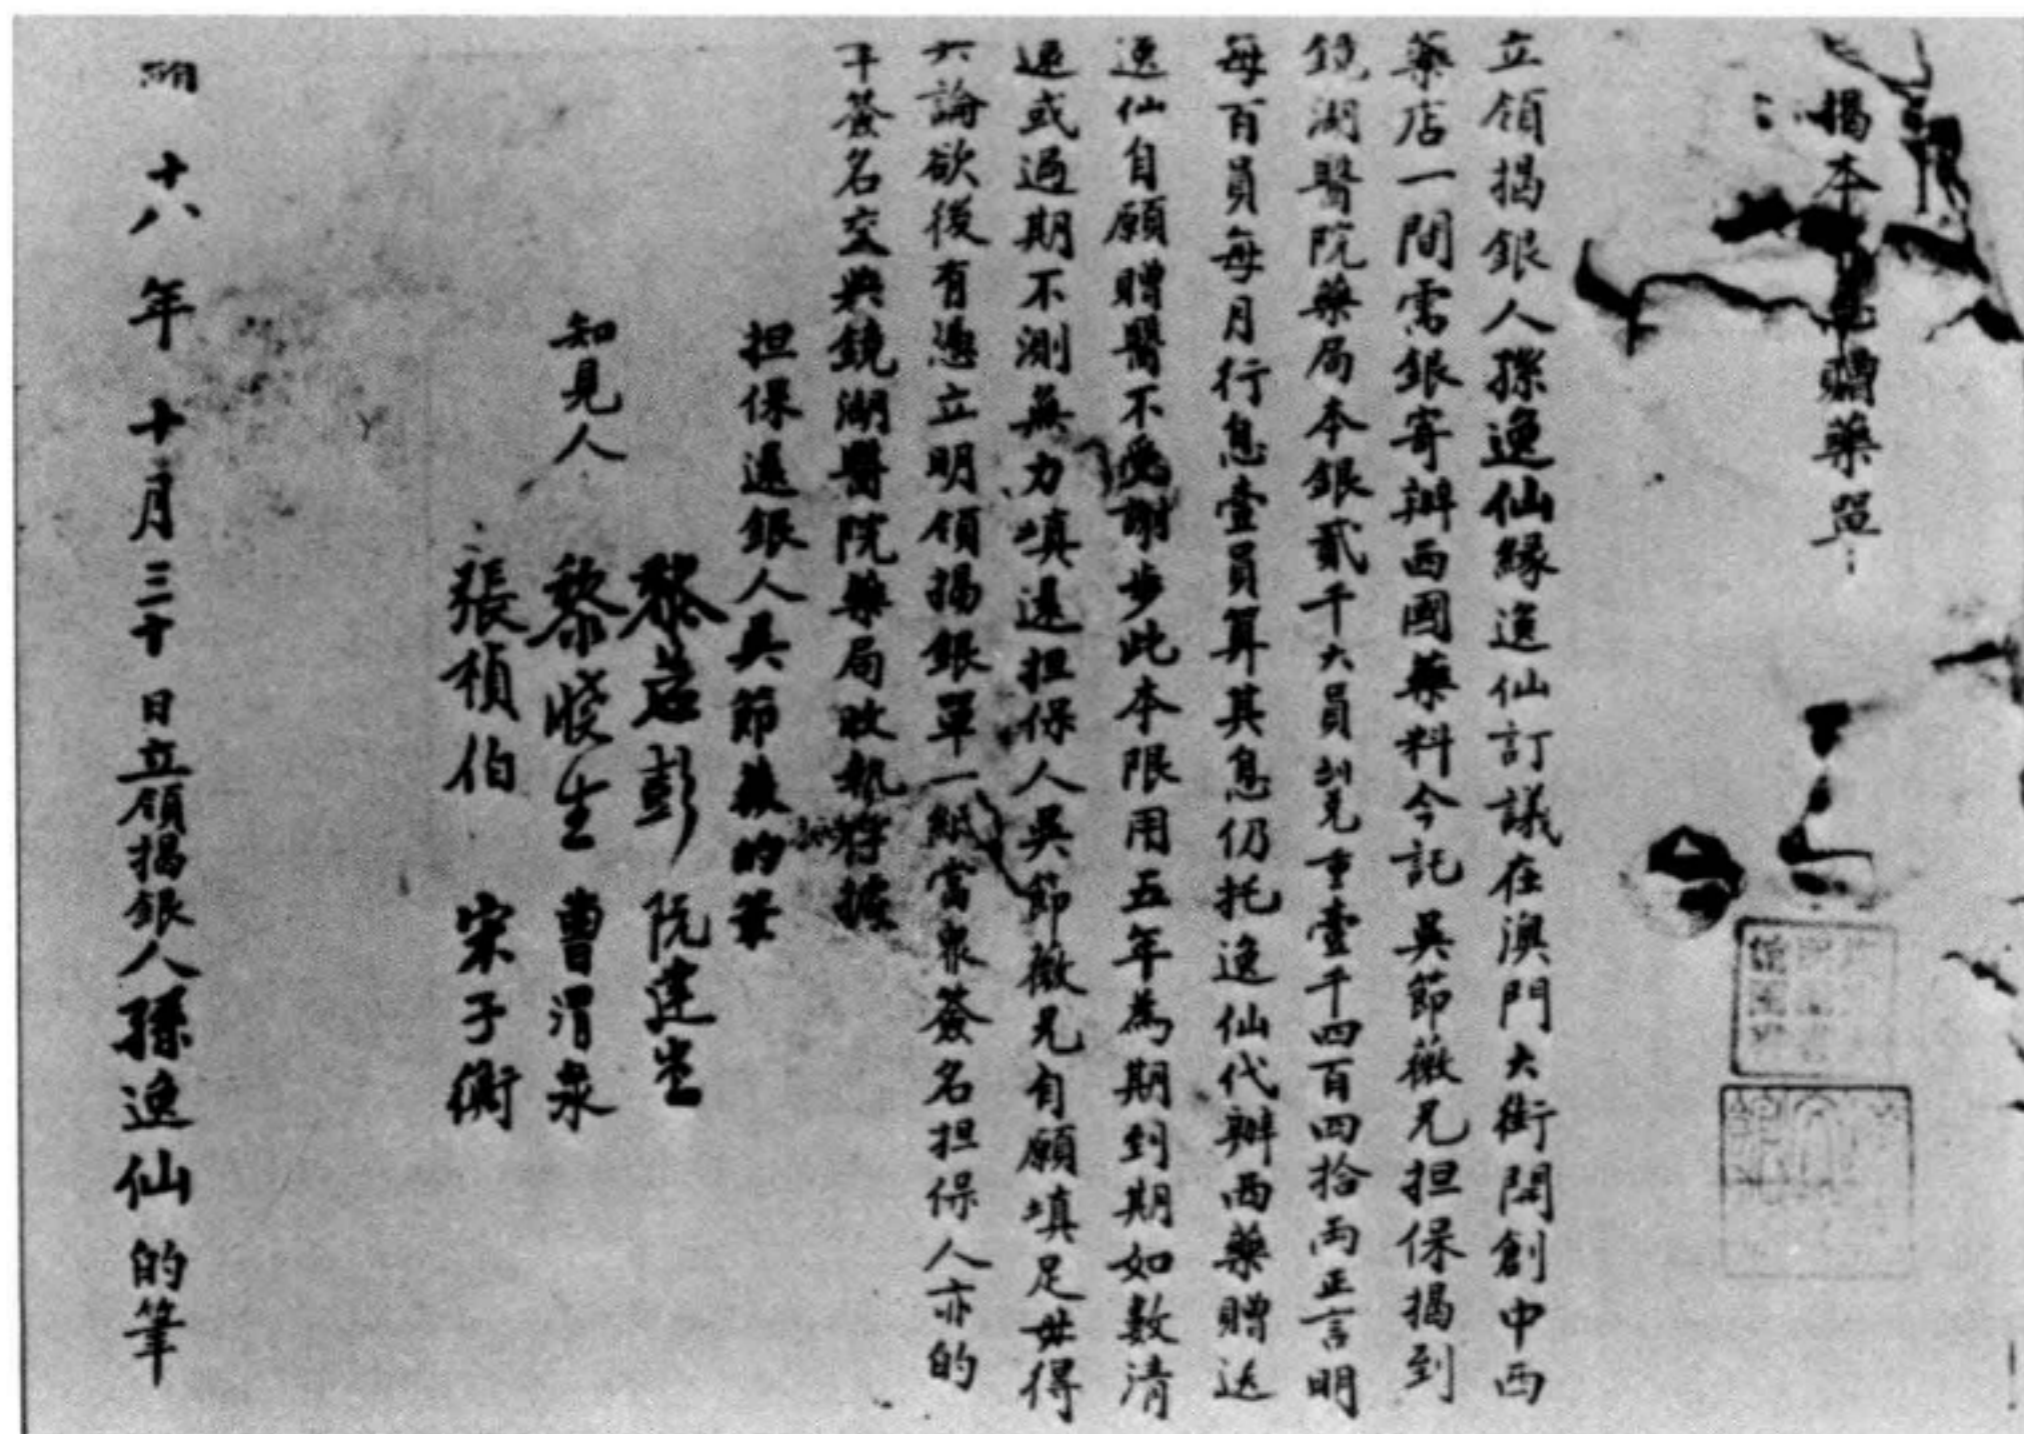 揭本　贈藥單
立領揭銀人孫逸仙緣逸仙訂議在澳門大街開創中西
藥店一間需銀寄辦西國藥料今託吳節薇兄担保揭到
鏡湖醫院藥局本銀貳千大員七兌重壹千四百四拾両正言明
每百員每月行息壹員算其息仍托逸仙代辦西藥贈送
逸仙自願贈醫不受謝步此本限用五年為期到期如數清
還或過期不測無力填還担保人吳節薇兄自願填足毋得
論欲後有憑立明領揭銀單一紙當衆簽名担保人亦的
簽名交與鏡湖醫院藥局收執存據
担保還銀人吳節薇的筆
知見人
黎若彭　阮建堂
黎曉生　曹渭泉
張楨伯　宋子衡
十八年十月三十日立領揭銀人孫逸仙的筆